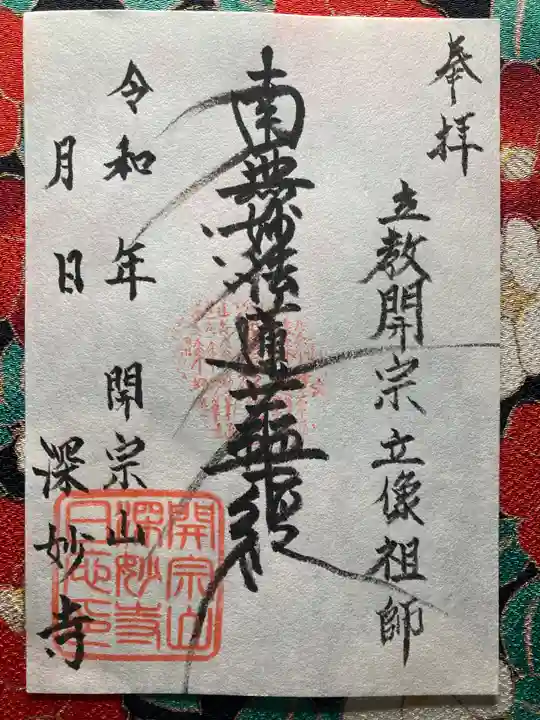 奉拝
立教開宗立像祖師
南無妙法蓮華経
令和 年 開宗山
月 日 深妙寺
開宗山
深妙寺